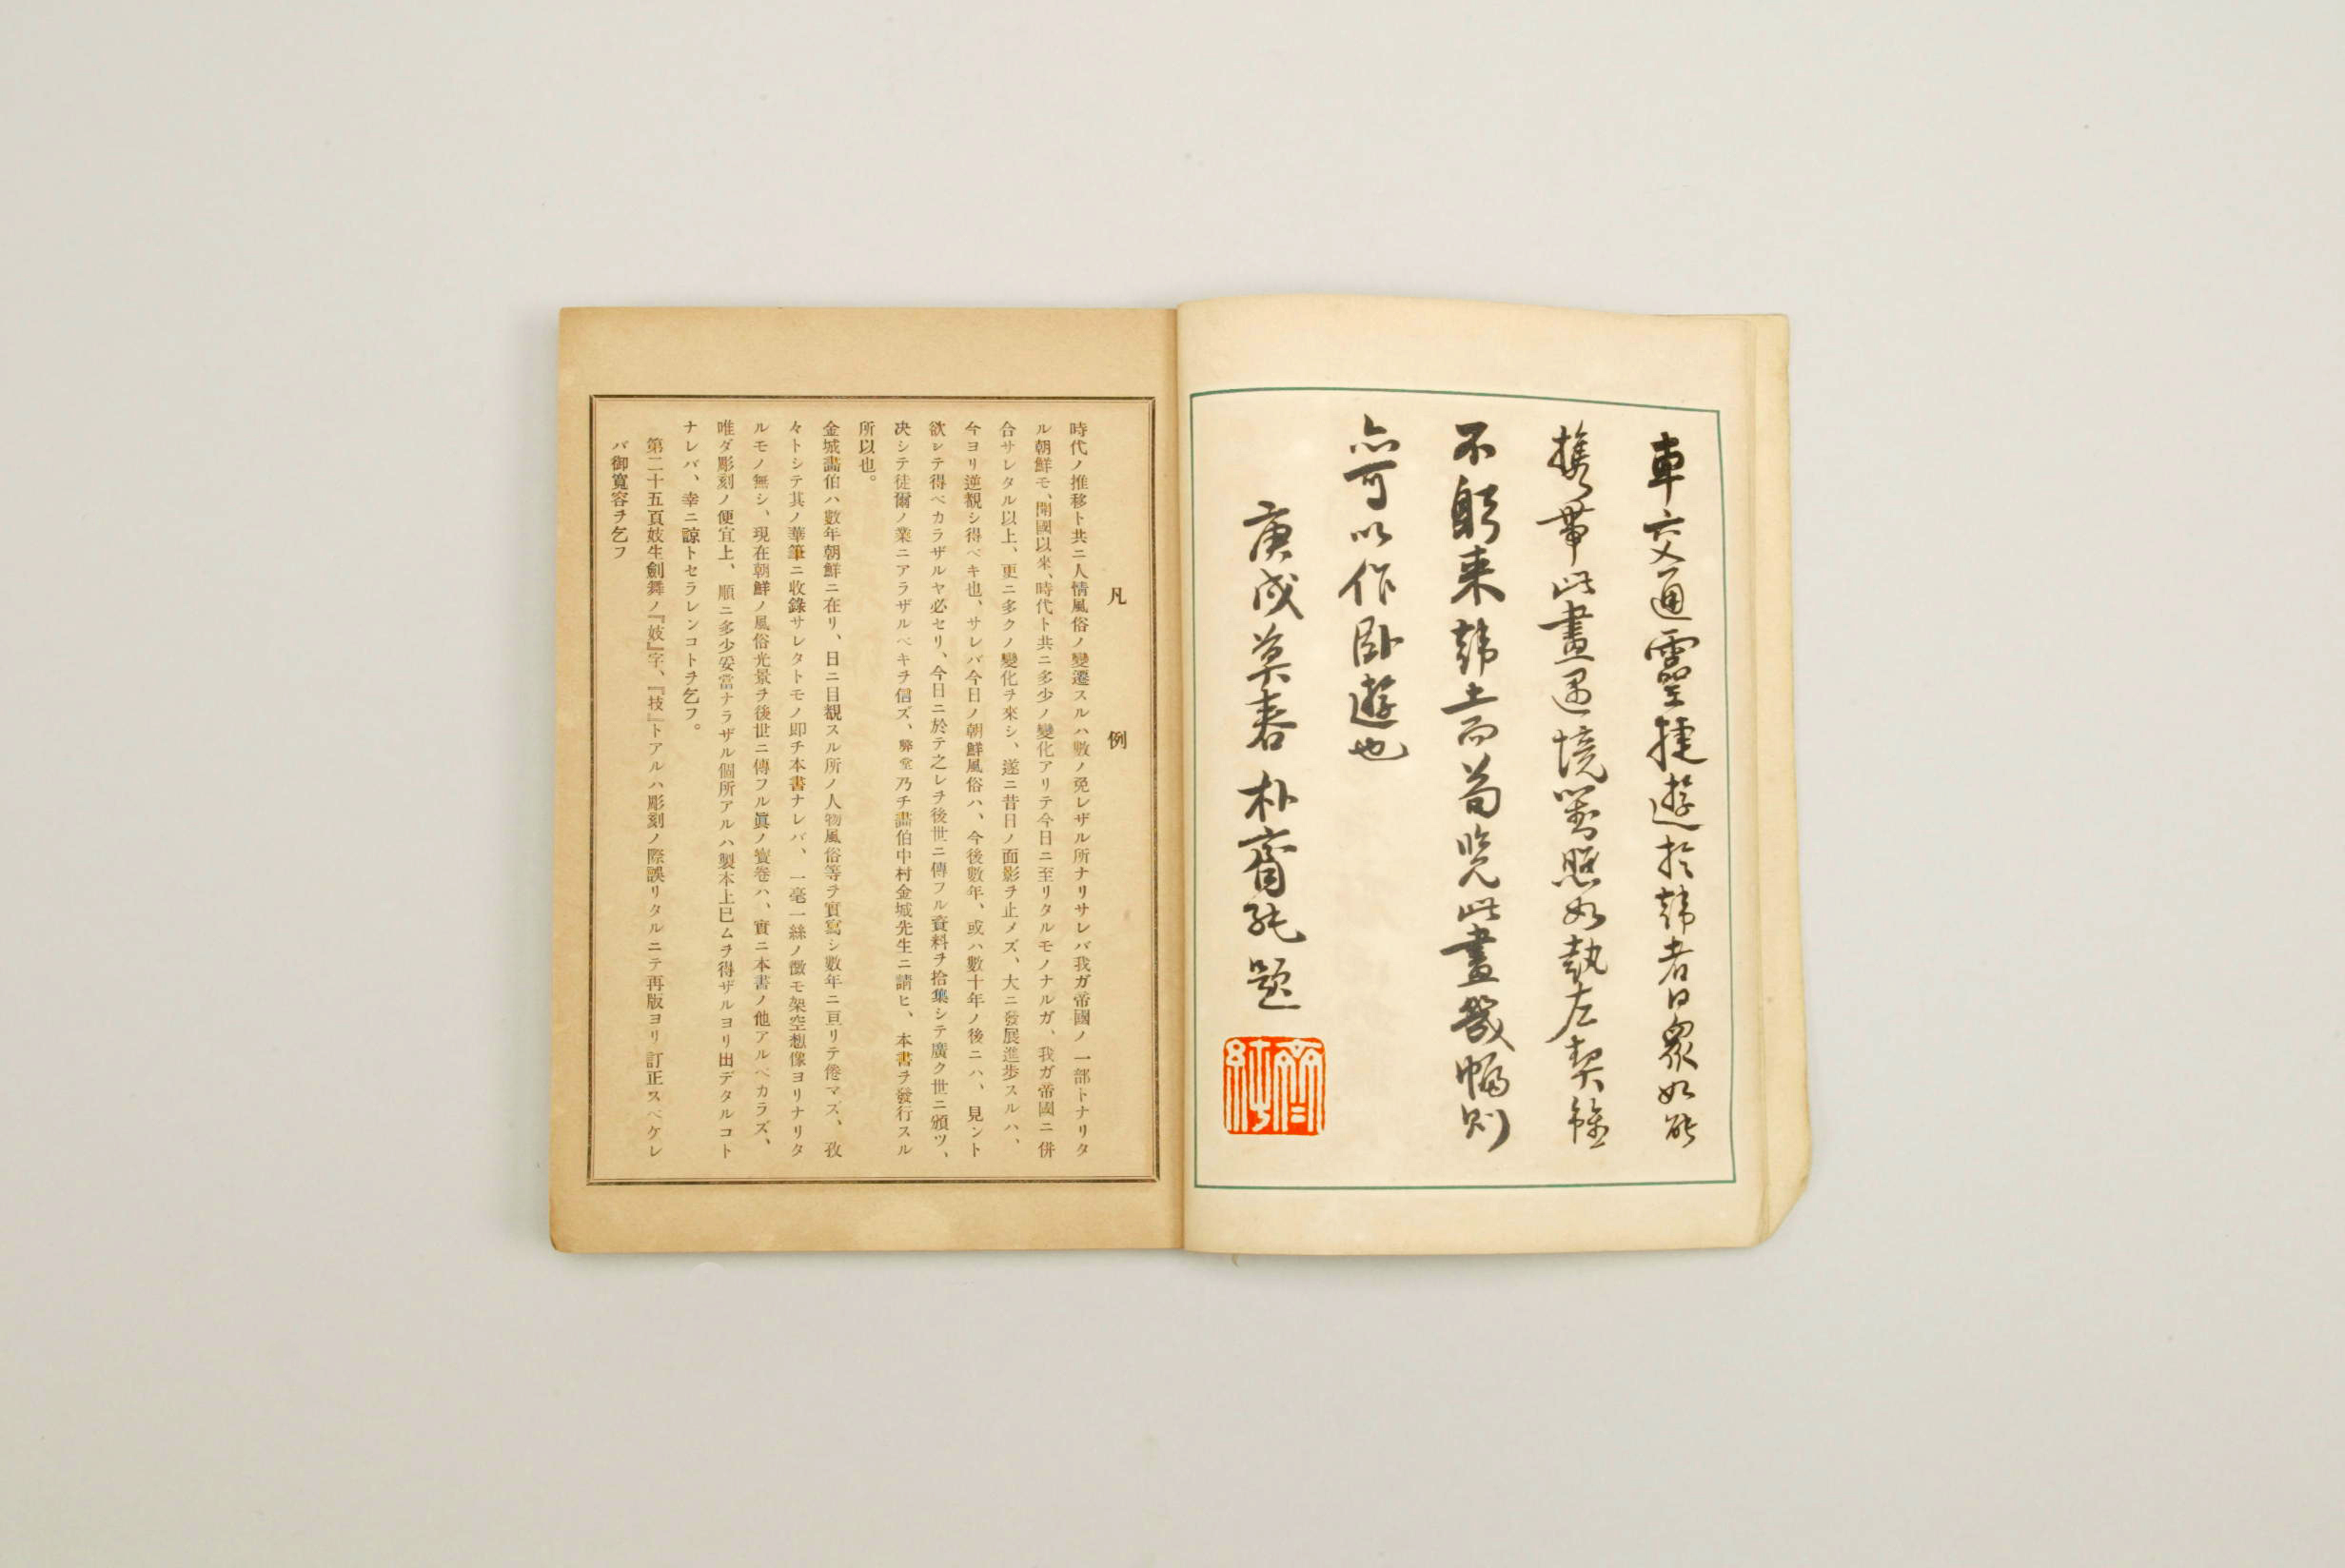 車交通靈捷遊於韓者日衆如能
携帶此畫遇境對照如執左契雖
不躬来韓土而苟覽此畫幾幅則
亦可以作卧遊也
庚戌莫春 朴齋純題
凡例
時代ノ推移ト共ニ人情風俗ノ變遷スルハ數ノ免レザル所ナリサレバ我ガ帝國ノ一部トナリタ
ル朝鮮モ、開國以來、時代ト共ニ多少ノ變化アリテ今日ニ至リタルモノナルガ、我ガ帝國ニ併
合サレタル以上、更ニ多クノ變化ヲ來シ、遂ニ昔日ノ面影ヲ止メズ、大ニ發展進歩スルハ、
今ヨリ逆観シ得ベキ也、サレバ今日ノ朝鮮風俗ハ、今後數年、或ハ數十年ノ後ニハ、見ント
欲シテ得ベカラザルヤ必セリ、今日ニ於テ之レヲ後世ニ傳フル資料ヲ拾集シテ廣ク世ニ頒ツ、
决シテ徒爾ノ業ニアラザルベキヲ信ズ、弊堂乃チ畵伯中村金城先生ニ請ヒ、本書ヲ發行スル
所以也。
金城畵伯ハ數年朝鮮ニ在リ、日ニ目覩スル所ノ人物風俗等ヲ實寫シ數年ニ亘リテ倦マズ、孜
々トシテ其ノ華筆ニ收錄サレタトモノ即チ本書ナレバ、一毫一絲ノ微モ架空想像ヨリナリタ
ルモノ無シ、現在朝鮮ノ風俗光景ヲ後世ニ傳フル眞ノ寳卷ハ、實ニ本書ノ他アルベカラズ、
唯ダ彫刻ノ便宜上、順ニ多少妥當ナラザル個所アルハ製本上巳ムヲ得ザルヨリ出デタルコト
ナレバ、幸ニ諒トセラレンコトヲ乞フ。
第二十五頁妓生劍舞ノ『妓』字、『技』トアルハ彫刻ノ際誤リタルニテ再版ヨリ訂正スベケレ
バ御寬容ヲ乞フ